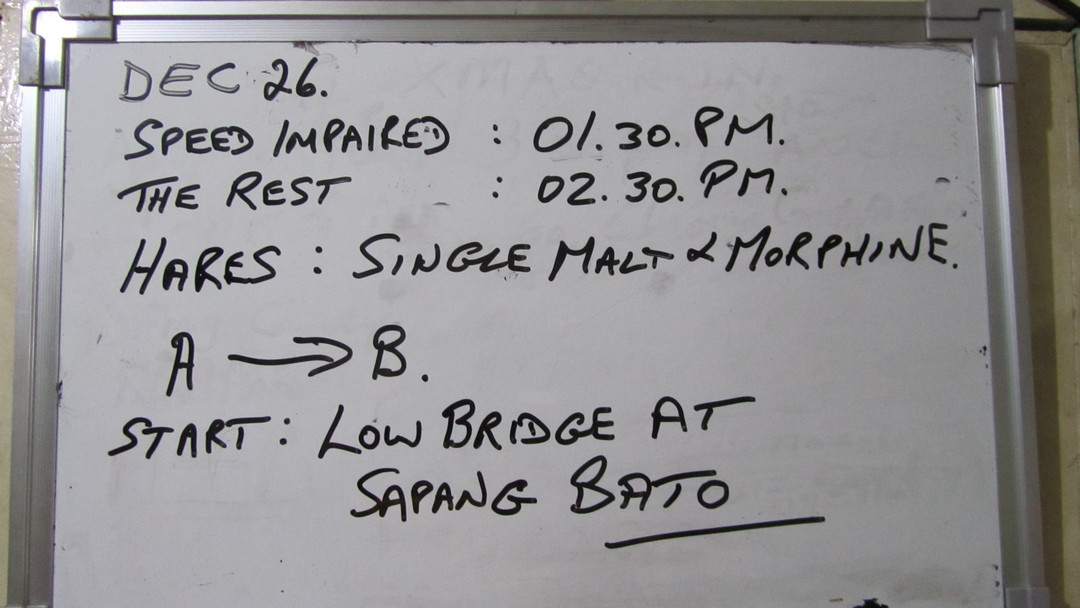 DEC 26.
SPEED IMPAIRED : 01.30. PM.
THE REST : 02.30. PM.
HARES : SINGLE MALT & MORPHINE.
A → B.
START : LOW BRIDGE AT
SAPANG BATO